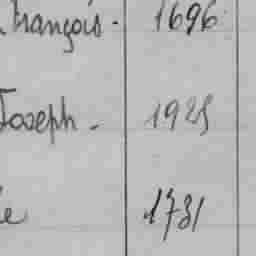 François. 1696
Joseph. 1925
e 1731